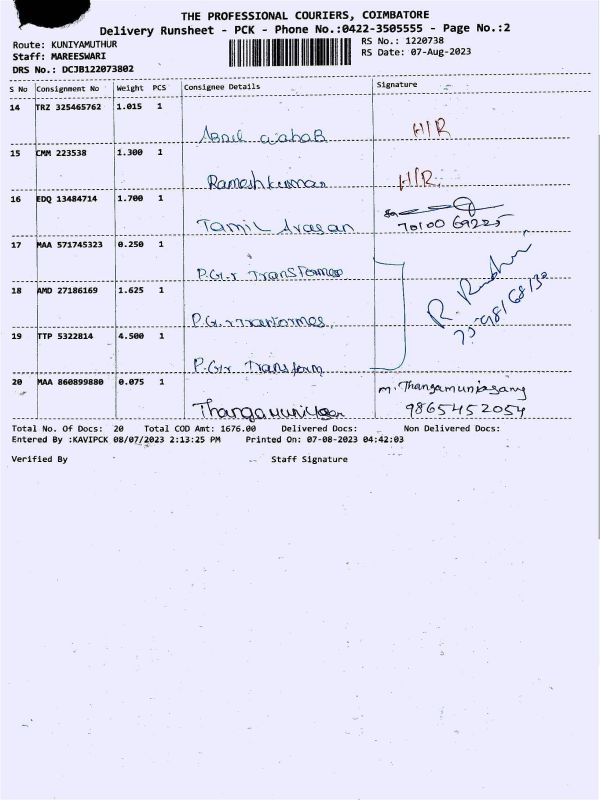 THE PROFESSIONAL COURIERS, COIMBATORE
Delivery Runsheet - PCK - Phone No.:0422-3505555 - Page No.:2
Route: KUNIYAMUTHUR
Staff: MAREESWARI
DRS No.: DCJB122073802
RS No.: 1220738
RS Date: 07-Aug-2023
S No Consignment No Weight PCS Consignee Details Signature
14 TRZ 325465762 1.015 1
H/R
15 CMM 223538 1.300 1
Rameshkumar H/R.
16 EDQ 13484714 1.700 1
Tamil Arasan 70100 69225
17 MAA 571745323 0.250 1
P.G.r Transformes
18 AMD 27186169 1.625 1
P.G.r
R.
19 TTP 5322814 4.500 1
P.G.r Transform
20 MAA 860899880 0.075 1
m. Thangamuniasamy
98654 52054
Total No. Of Docs: 20 Total COD Amt: 1676.00 Delivered Docs: Non Delivered Docs:
Entered By :KAVIPCK 08/07/2023 2:13:25 PM Printed On: 07-08-2023 04:42:03
Verified By Staff Signature